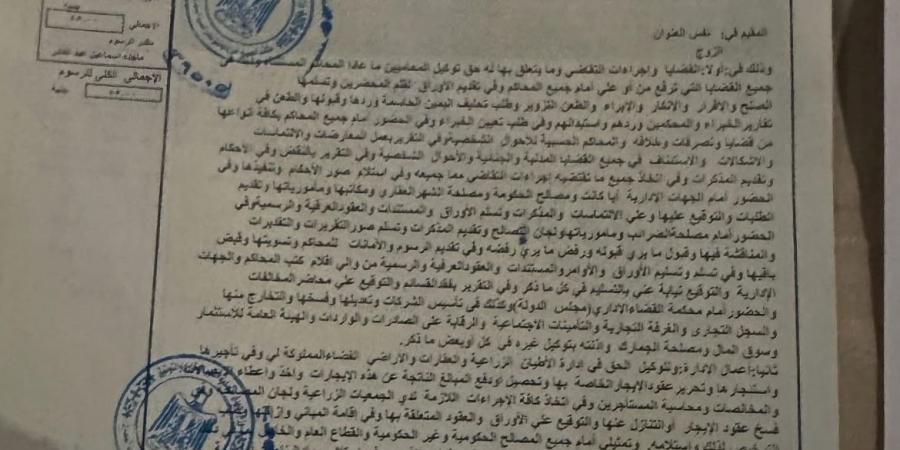 جنيه
الاجمالي
٤٥.٠٠٠
مقدر الرسوم
الإجمالي الكلي للرسوم
جنيه
٤٥.٠٠٠
المقيم في: نفس العنوان
الزوج
وذلك في: أولا: القضايا وإجراءات التقاضي وما يتعلق بها له حق توكيل المحاميين ما عادا المحاكم في
جميع القضايا التي ترفع من أو علي أمام جميع المحاكم وفي تقديم الأوراق لقلم المحضرين وتسلمها
الصلح والاقرار والانكار والإبراء والطعن التزوير وطلب تحليف اليمين الحاسمة وردها وقبولها والطعن في
تقارير الخبراء والمحكمين وردهم واستبدالهم وفي طلب تعيين الخبراء وفي الحضور أمام جميع المحاكم بكافة أنواعها
من قضايا وتصرفات وخلافه والمحاكم الحسبية للأحوال الشخصية وفي التقرير بعمل المعارضات والالتماسات
والاشكالات والاستئناف في جميع القضايا المدنية والجنائية والأحوال الشخصية وفي التقرير بالنقض في الأحكام
وتقديم المذكرات وفي اتخاذ جميع ما تقتضيه إجراءات التقاضي مما جميعه وفي استلام صور الأحكام وتنفيذها وفي
الحضور أمام الجهات الادارية أيا كانت ومصالح الحكومة ومصلحة الشهر العقاري ومكاتبها ومأمورياتها وتقديم
الطلبات والتوقيع عليها وعلي الالتماسات والمذكرات وتسلم الأوراق والمستندات والعقود العرفية والرسمية وفي
الحضور أمام مصلحة الضرائب ومأمورياتها ولجان التصالح وتقديم المذكرات وتسلم صور التقريرات والتقديرات
والمناقشة فيها وقبول ما يري قبوله ورفض ما يري رفضه وفي تقديم الرسوم والأمانات للمحاكم وتسويتها وقبض
باقيها وفي تسلم وتسليم الأوراق والأوامر والمستندات والعقود العرفية والرسمية من والي اقلام كتب المحاكم والجهات
الإدارية والتوقيع نيابة عني بالتسليم في كل ما ذكر وفي التقرير بفقد القسائم والتوقيع علي محاضر المخالفات
والحضور أمام محكمة القضاء الاداري (مجلس الدولة) وكذلك في تأسيس الشركات وتعديلها وفسخها والتخارج منها
والسجل التجاري والغرفة التجارية والتأمينات الاجتماعية والرقابة على الصادرات والواردات والهيئة العامة للأستثمار
وسوق المال ومصلحة الجمارك واذنته بتوكيل غيره في كل أو بعض ما ذكر.
ثانيا: أعمال الإدارة: وتوكيل الحق في إدارة الأطيان الزراعية والعقارات والاراضي الفضاء المملوكة لي وفي تأجيرها
واستئجارها وتحرير عقود الإيجار الخاصة بها وتحصيل أو دفع المبالغ الناتجة عن هذه الإيجارات واخذ واعطاء
والمخالصات ومحاسبة المستأجرين وفي اتخاذ كافة الإجراءات اللازمة لدي الجمعيات الزراعية ولجان
فسخ عقود الإيجار أو التنازل عنها والتوقيع علي الأوراق والعقود المتعلقة بها وفي إقامة المباني وإزالتها
لذلك واستلامه. وتمثيلي أمام جميع المصالح الحكومية وغير الحكومية والقطاع العام والخاص